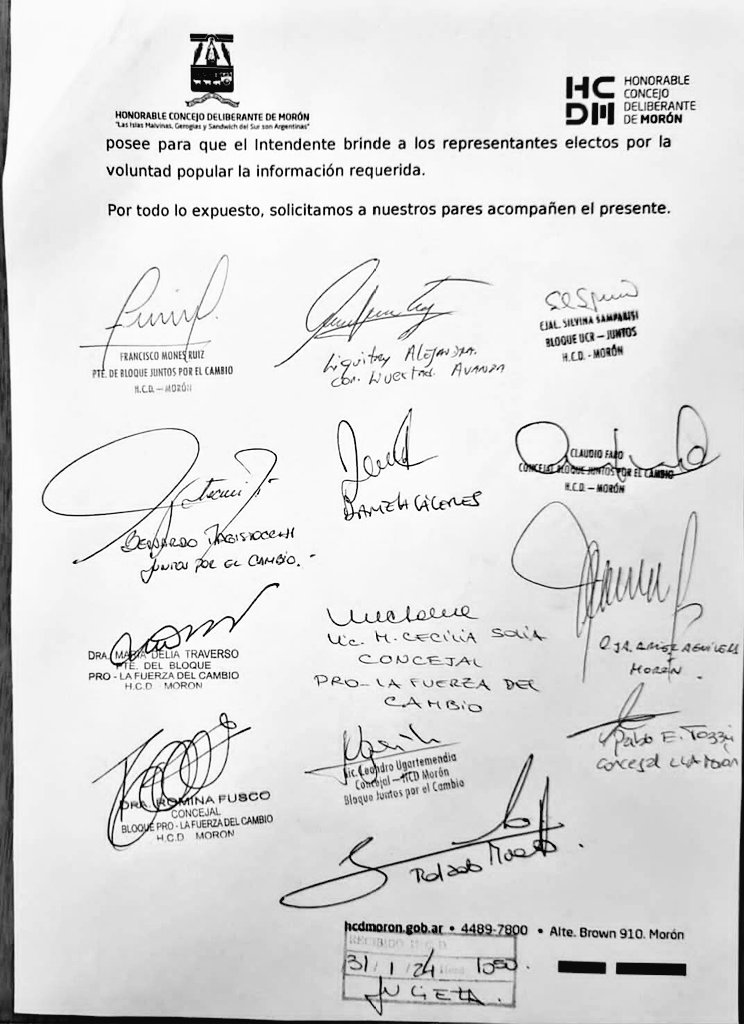 HONORABLE CONCEJO DELIBERANTE DE MORÓN
"Las Islas Malvinas, Georgias y Sandwich del Sur son Argentinas"
HCDM
HONORABLE
CONCEJO
DELIBERANTE
DE MORÓN
posee para que el Intendente brinde a los representantes electos por la
voluntad popular la información requerida.
Por todo lo expuesto, solicitamos a nuestros pares acompañen el presente.
FRANCISCO MONES RUIZ
PTE. DE BLOQUE JUNTOS POR EL CAMBIO
H.C.D. – MORÓN
Liquitay Alejandra.
Con. Libertad Avanza
EJAL. SILVINA SAMPARISI
BLOQUE UCR – JUNTOS
H.C.D. - MORÓN
BERNARDO
JUNTOS POR EL CAMBIO.-
DANIELA CÁCERES
CLAUDIO FARO
CONCEJAL BLOQUE JUNTOS POR EL CAMBIO
H.C.D. – MORÓN
DRA. MARÍA DELIA TRAVERSO
PTE. DEL BLOQUE
PRO - LA FUERZA DEL CAMBIO
H.C.D. MORON
Lic. M. CECILIA
CONCEJAL
PRO - LA FUERZA DEL
CAMBIO
MORÓN.
DRA. ROMINA FUSCO
CONCEJAL
BLOQUE PRO - LA FUERZA DEL CAMBIO
H.C.D. MORON
Lic. Leandro Ugartemendia
Concejal – HCD Morón
Bloque Juntos por el Cambio
Pablo E. Tozzi
Concejal LLA Morón
Rolando
hcdmoron.gob.ar • 4489-7800 • Alte. Brown 910. Morón
RECIBIDO H.C.D.
31/1/24 Hora 1050.
JULIETA.